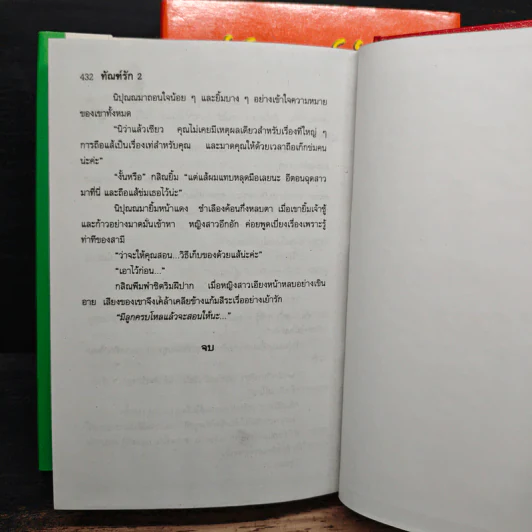 432 ทัณฑ์รัก 2
นิปุณณมาถอนใจน้อย ๆ และยิ้มบาง ๆ อย่างเข้าใจความหมาย
ของเขาทั้งหมด
“นิว่าแล้วเชียว คุณไม่เคยมีเหตุผลเดียวสำหรับเรื่องที่ใหญ่ ๆ
การถือแส้เป็นเรื่องเท่สำหรับคุณ และมาดคุณให้ด้วยเวลาถือเก๊กข่มคน
น่ะค่ะ”
“งั้นหรือ” กสิณยิ้ม “แต่แส้ผมแทบหลุดมือเลยนะ อีตอนฉุดสาว
มาที่นี่ และถือแส้ข่มเธอไว้น่ะ”
นิปุณณมายิ้มหน้าแดง ชำเลืองค้อนกึ่งหลบตา เมื่อเขายิ้มเจ้าชู้
และก้าวอย่างมาดมั่นเข้าหา หญิงสาวอึกอัก ค่อยพูดเบี่ยงเรื่องเพราะรู้
ท่าทีของสามี
“ว่าจะให้คุณสอน...วิธีเก็บของด้วยแส้น่ะค่ะ”
“เอาไว้ก่อน...”
กสิณพึมพำชิดริมฝีปาก เมื่อหญิงสาวเอียงหน้าหลบอย่างเขิน
อาย เสียงของเขาจึงเคล้าเคลียข้างแก้มสีระเรื่ออย่างเย้ารัก
“มีลูกครบโหลแล้วจะสอนให้นะ...”
จบ